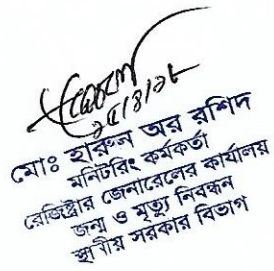 ২৫/৪/১৮
মোঃ হারুন অর রশিদ
মনিটরিং কর্মকর্তা
রেজিস্ট্রার জেনারেলের কার্যালয়
জন্ম ও মৃত্যু নিবন্ধন
স্থানীয় সরকার বিভাগ